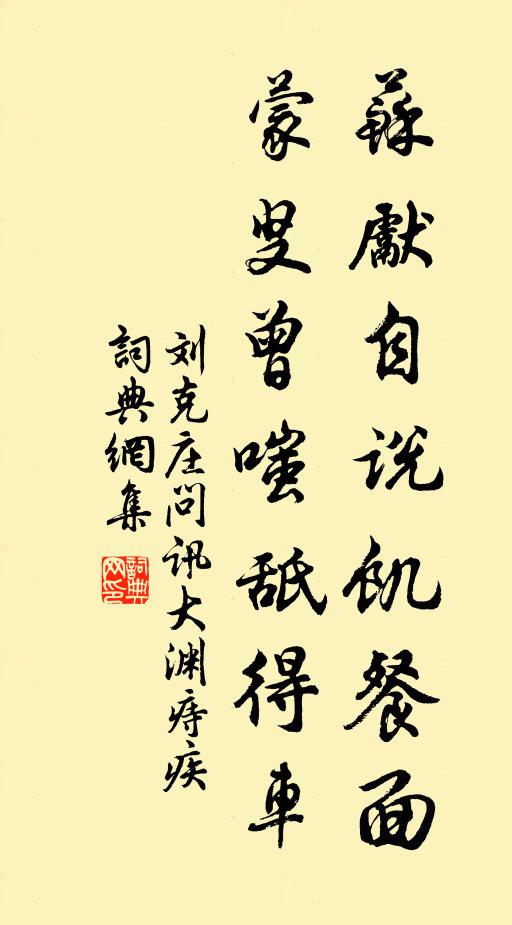 蘇獻自说飢餐面
蒙叟曾嗤舐得車
刘克庄问讯大渊痔疾
詞典網集
詞典网印